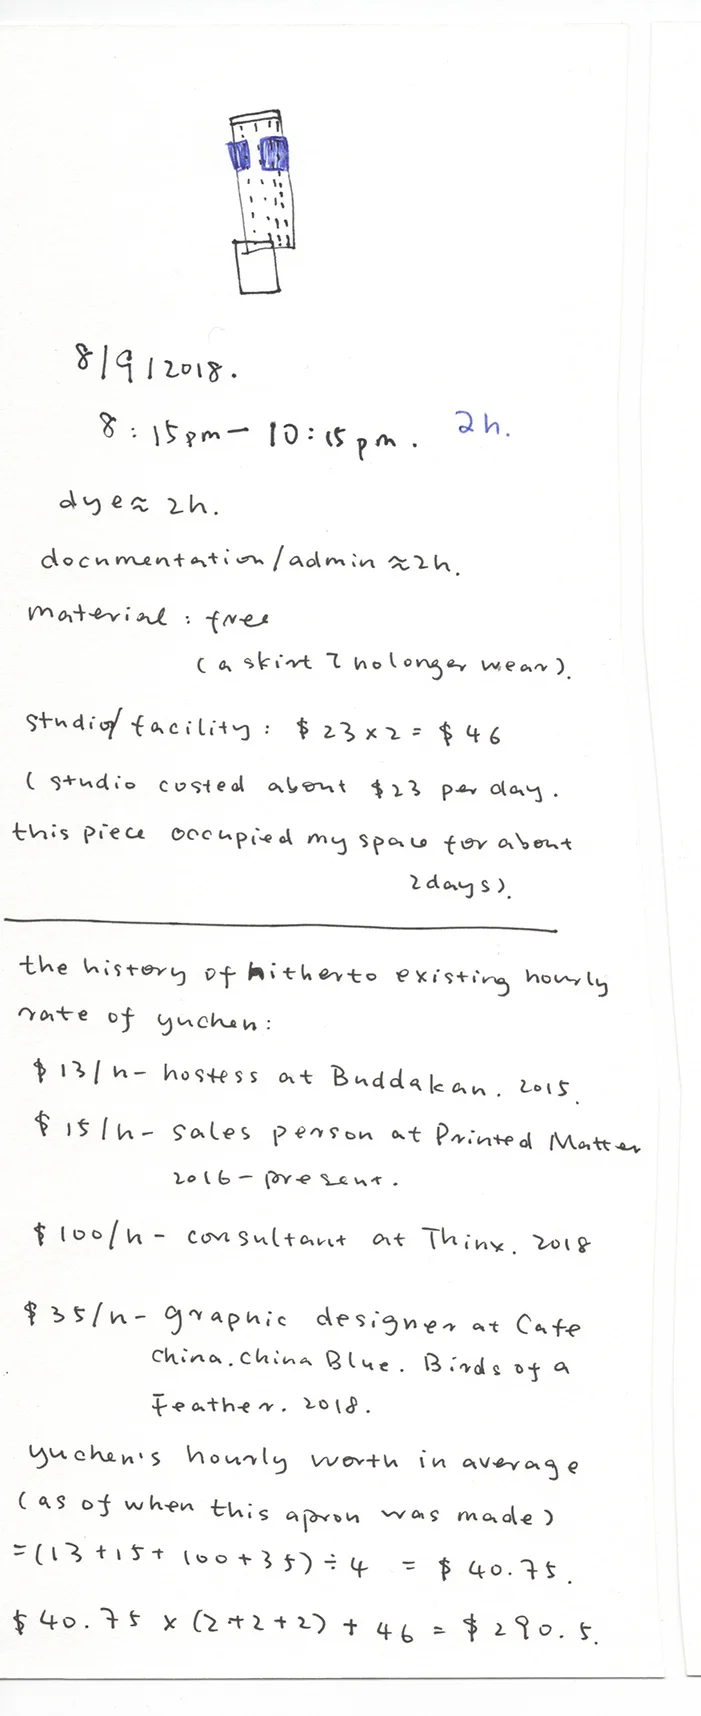 8/9/2018.
8:15pm - 10:15pm. 2h.
dye ≈ 2h.
documentation/admin ≈ 2h.
material : free
(a skirt I no longer wear).
studio/facility : $23 x 2 = $46
(studio costed about $23 per day.
this piece occupied my space for about
2days).
the history of hitherto existing hourly
rate of yuchen:
$13/h - hostess at Buddakan. 2015.
$15/h - sales person at Printed Matter
2016 - present.
$100/h - consultant at Thinx. 2018
$35/h - graphic designer at Cafe
China. China Blue. Birds of a
Feather. 2018.
yuchen's hourly worth in average
(as of when this apron was made)
=(13+15+100+35)÷4 = $40.75.
$40.75 x (2+2+2) + 46 = $290.5.